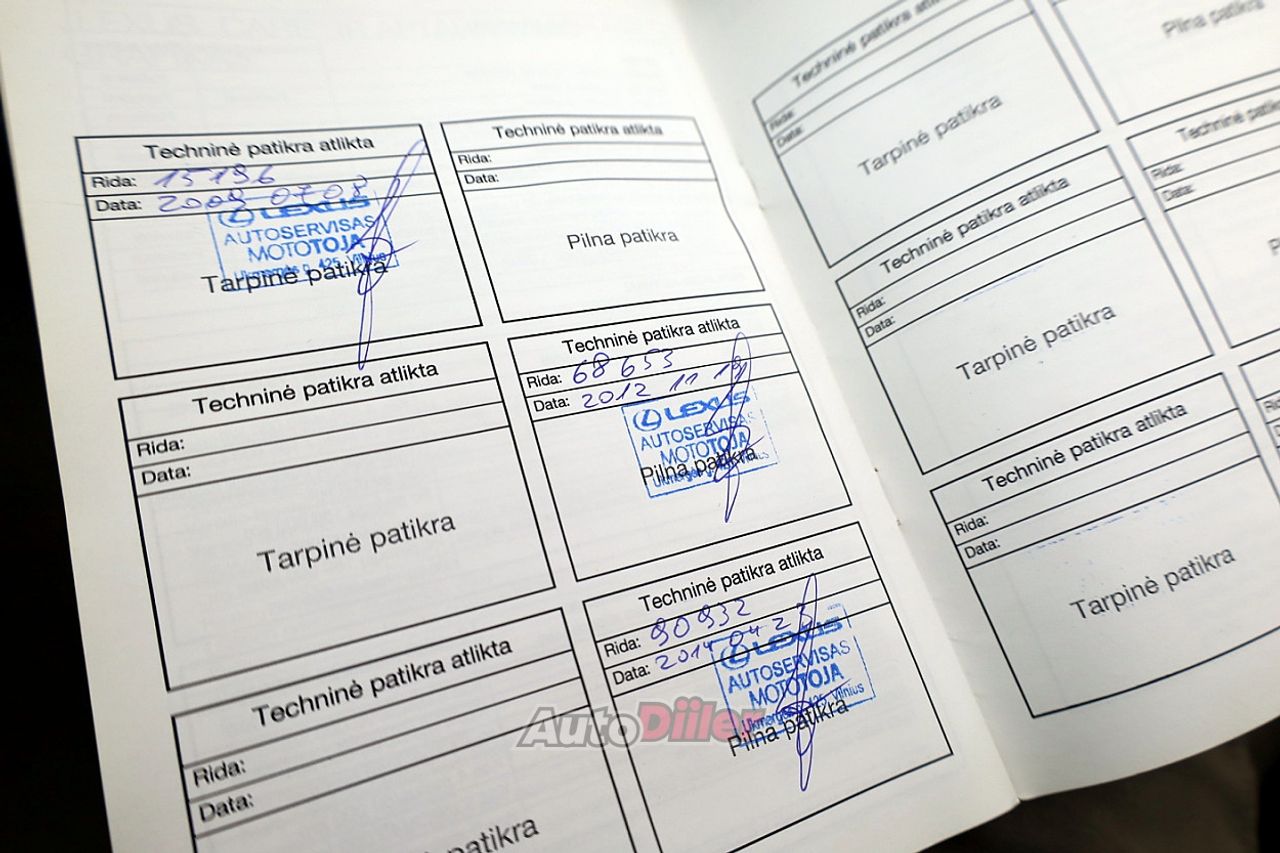 Techninė patikra atlikta
Rida: 15196
Data: 2009 07 08
LEXUS
AUTOSERVISAS
MOTOTOJA
Ukmergės g. 425, Vilnius
Tarpinė patikra
Techninė patikra atlikta
Rida:
Data:
Pilna patikra
Techninė patikra atlikta
Rida:
Data:
Tarpinė patikra
Techninė patikra atlikta
Rida: 68653
Data: 2012 11 19
LEXUS
AUTOSERVISAS
MOTOTOJA
Ukmergės g. Vilnius
Pilna patikra
Techninė patikra atlikta
Rida:
Data:
Tarpinė patikra
Techninė patikra atlikta
Rida: 90932
Data: 2014 04 23
LEXUS
AUTOSERVISAS
MOTOTOJA
Ukmergės g. 425, Vilnius
Pilna patikra
AutoDiiler
Techninė patikra atlikta
Rida:
Data:
Tarpinė patikra
Pilna patikra
Techninė patikra atlikta
Rida:
Data:
Tarpinė patikra
Techninė
Rida:
Data:
Techninė patikra atlikta
Rida:
Data:
Tarpinė patikra